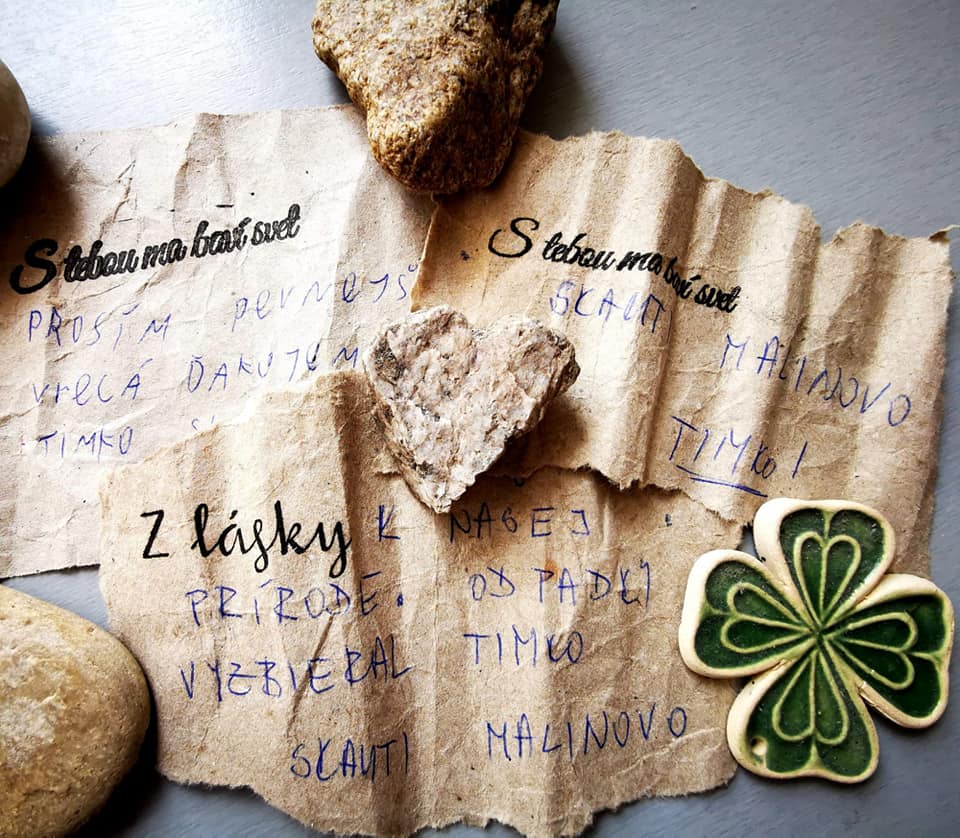 S tebou ma baví svet
PROSÍM PEVNEJŠ
VRECÁ ĎAKUJEM
TIMKO
S tebou ma baví svet
SKAUT
MALINOVO
TIMKO!
Z lásky K NAŠEJ
PRÍRODE. ODPADKY
VYZBIERAL TIMKO
SKAUTI MALINOVO